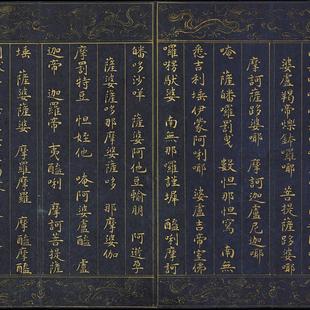 婆盧羯帝爍鉢囉耶　菩提薩跢婆耶
摩訶薩跢婆耶　摩訶迦盧尼迦耶
唵　薩皤囉罰曳　數怛那怛寫　南無
悉吉利埵伊蒙阿利耶　婆盧吉帝室佛
囉楞馱婆　南無那囉謹墀　醯唎摩訶
皤哆沙咩　薩婆阿他豆輸朋　阿遊孕
薩婆薩哆那摩婆薩哆　那摩婆伽
摩罰特豆　怛姪他　唵阿婆盧醯　盧
迦帝　迦羅帝　夷醯唎　摩訶菩提薩
埵　薩婆薩婆　摩羅摩羅　摩醯摩醯